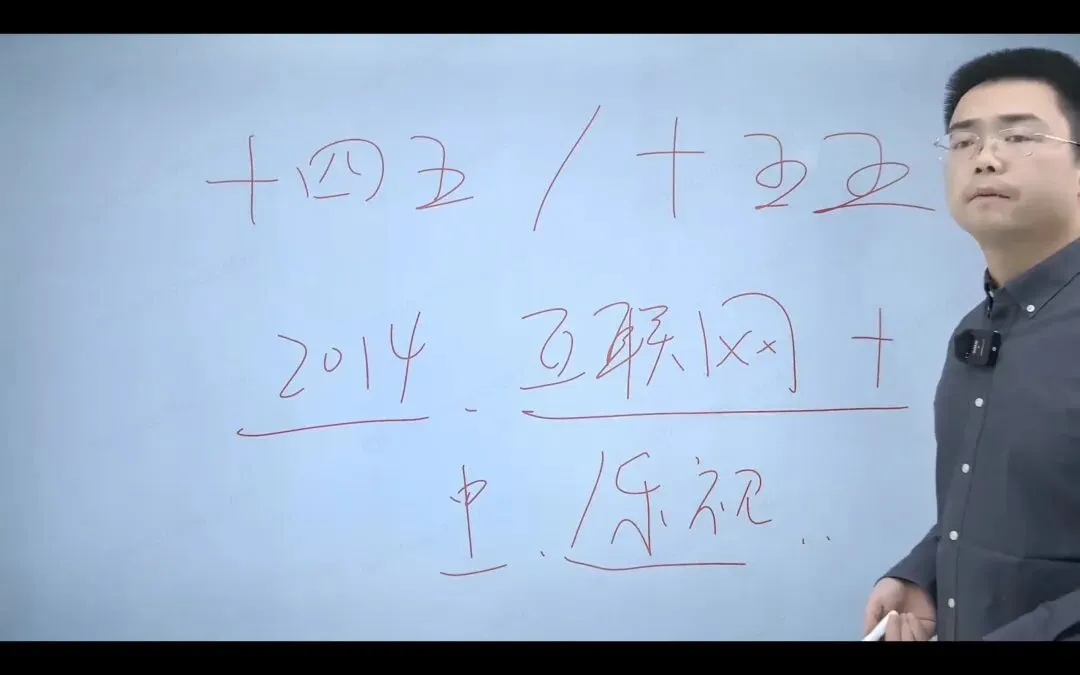 十四五 / 十五五
2014 - 互联网 +
中 . / 乐视 ..